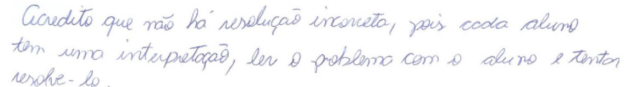 Acredito que não há resolução incorreta, pois cada aluno
tem uma interpretação, ler o problema com o aluno e tentar
resolve-lo.